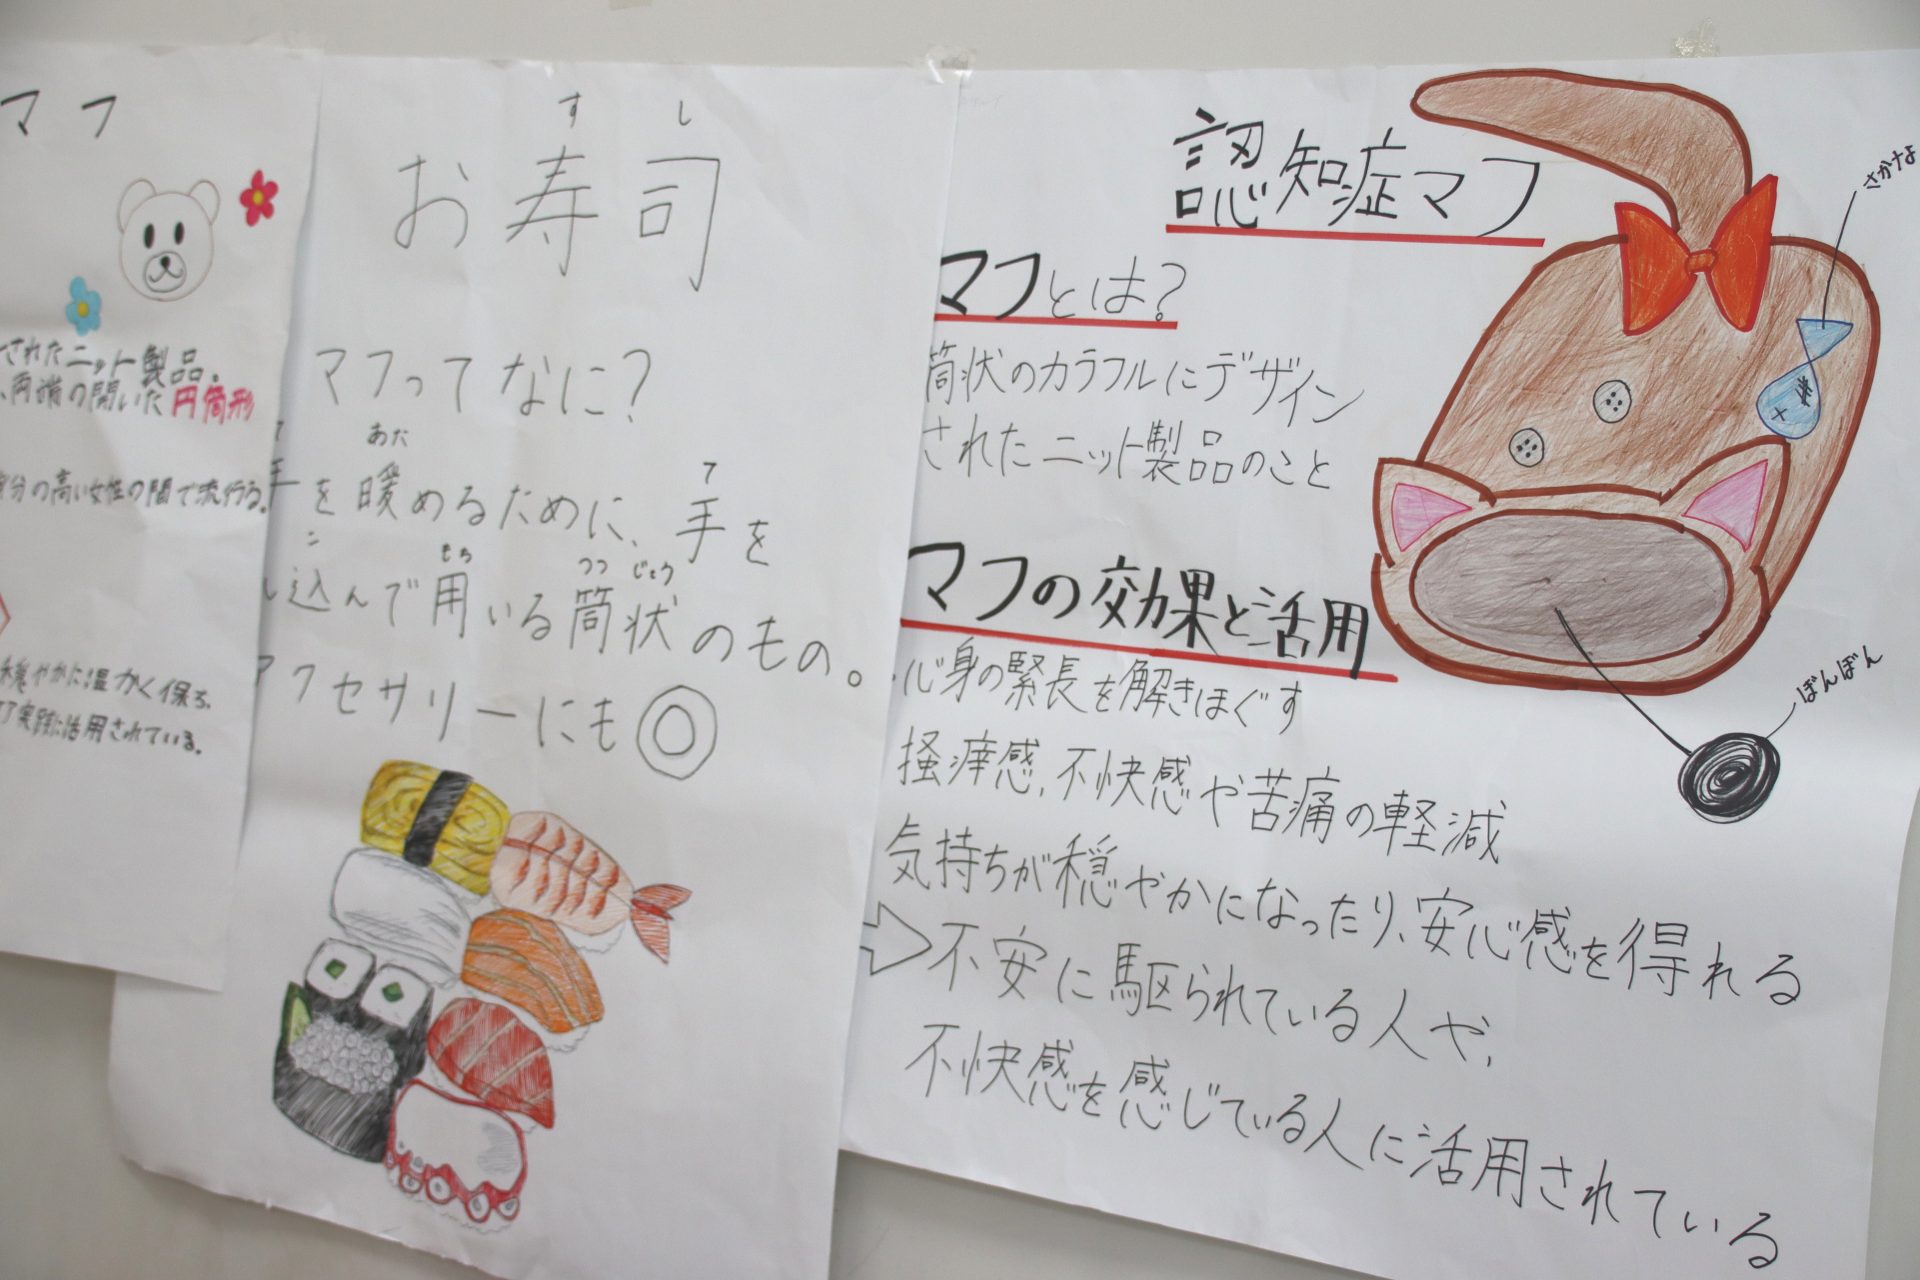 マフ
されたニット製品。
、両端の開いた円筒形
身分の高い女性の間で流行る。
穏やかに温かく保ち、
実際に活用されている。
すし
お寿司
マフってなに?
て あたた て
手を暖めるために、手を
こ もち つつじょう
し込んで用いる筒状のもの。
アクセサリーにも◎
認知症マフ
マフとは?
筒状のカラフルにデザイン
されたニット製品のこと
マフの効果と活用
・心身の緊張を解きほぐす
掻痒感、不快感や苦痛の軽減
気持ちが穏やかになったり、安心感を得れる
⇨不安に駆られている人や、
不快感を感じている人に活用されている
さかなよ
ぼんぼん